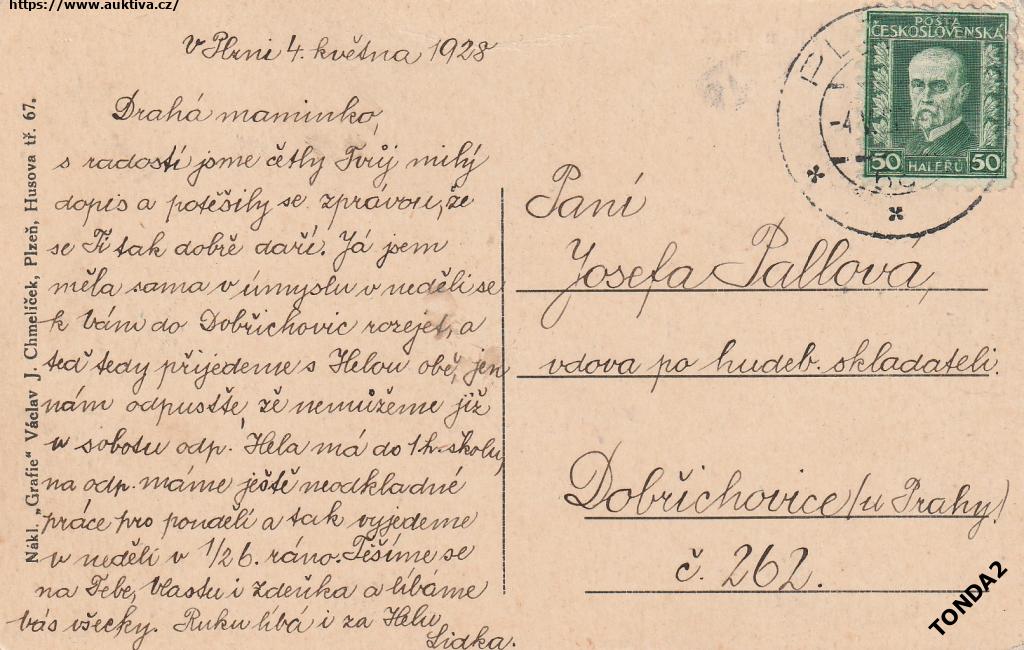 https://www.auktiva.cz/
V Plzni 4. května 1928
Drahá maminko,
s radostí jsme četly Tvůj milý
dopis a potěšily se zprávou, že
se Ti tak dobře daří. Já jsem
měla sama v úmyslu v neděli se
k Vám do Dobřichovic rozejet, a
teď tedy přijedeme s Helou obě, jen
nám odpusťte, že nemůžeme již
v sobotu odp. Hela má do 1 h. školu,
na odp. máme ještě neodkladné
práce pro pondělí a tak vyjedeme
v neděli v 1/2 6. ráno. Těšíme se
na Tebe, Vlastu i Zdeňka a líbáme
vás všecky. Ruku líbá i za Helu
Lidka.
Nákl. „Grafie" Václav J. Chmelíček, Plzeň, Husova tř. 67.
POŠTA
ČESKOSLOVENSKÁ
50 HALÉŘŮ 50
PL
-4
Paní
Josefa Pallová,
vdova po hudeb. skladateli.
Dobřichovice (u Prahy)
č. 262.
TONDA2